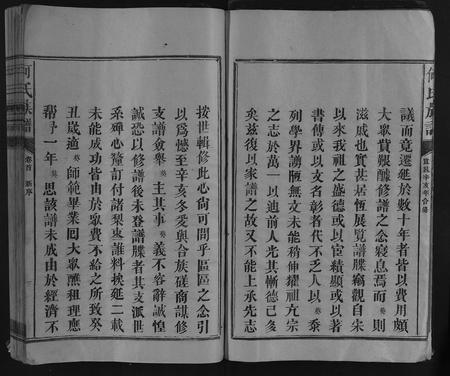 何氏族譜
辛亥年合修
議而竟遷延於數十年者皆以費用頗
大衆貲艱醵修譜之念寢焉而癸則
滋戚也實甚居恆展覽譜牒竊觀自宋
以來我祖之盛德或以宦績顯或以著
書傳或以文名彰者代不乏人以癸忝
列學界謭陋無文未能稍伸耀祖亢宗
之志於萬一以迪前人光其慚德已多
矣茲復以家譜之故又不能上承先志
按世輯修此心尚可問乎區區之念引
以爲憾至辛亥冬爰與合族磋商謀修
支譜僉舉癸主其事癸義不容辭誠惶
誠恐以修譜後未登譜牒者其支派世
系殫心釐訂付諸梨棗誰料挨延二載
未能成功皆由於衆費不給之所致癸
丑歲適癸師範畢業囘大衆醮祖理應
幫予一年癸思該譜未成由於經濟不
何氏族譜
卷首 新序